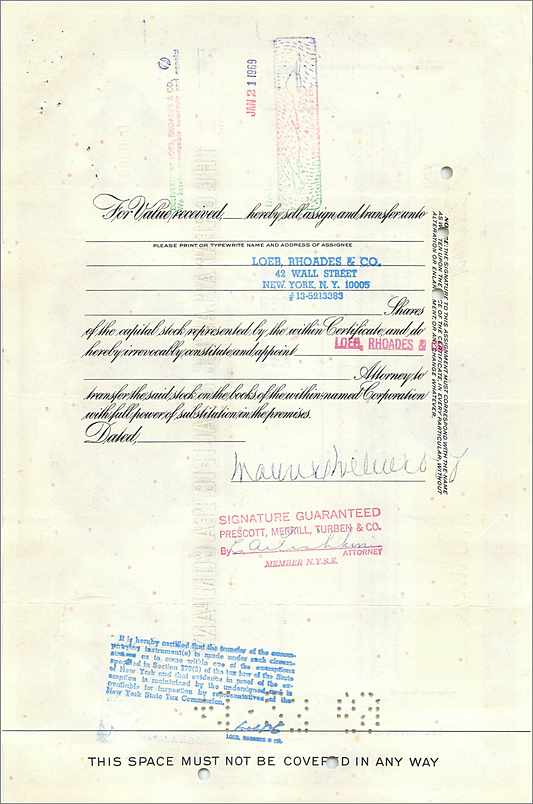 JAN 21 1969
For Value received, ___ hereby sell, assign, and transfer unto
PLEASE PRINT OR TYPEWRITE NAME AND ADDRESS OF ASSIGNEE
LOEB, RHOADES & CO.
42 WALL STREET
NEW YORK, N. Y. 10005
#13-5213383
Shares
of the capital stock represented by the within Certificate, and do
hereby irrevocably constitute and appoint
LOEB, RHOADES &
Attorney to
transfer the said stock on the books of the within named Corporation
with full power of substitution in the premises.
Dated,
THE SIGNATURE TO THIS ASSIGNMENT MUST CORRESPOND WITH THE NAME
AS WRITTEN UPON THE FACE OF THE CERTIFICATE IN EVERY PARTICULAR, WITHOUT
ALTERATION OR ENLARGEMENT OR ANY CHANGE WHATEVER.
SIGNATURE GUARANTEED
PRESCOTT, MERRILL, TURBEN & CO.
By
ATTORNEY
MEMBER N.Y.S.E.
It is hereby certified that the transfer of the accom-
panying instrument(s) is made under such circum-
stances as to come within one of the exemptions
specified in Section 270(5) of the tax law of the State
of New York and that evidence in proof of the ex-
emption is maintained by the undersigned and is
available for inspection by representatives of the
New York State Tax Commission.
LOEB, RHOADES & CO.
THIS SPACE MUST NOT BE COVERED IN ANY WAY